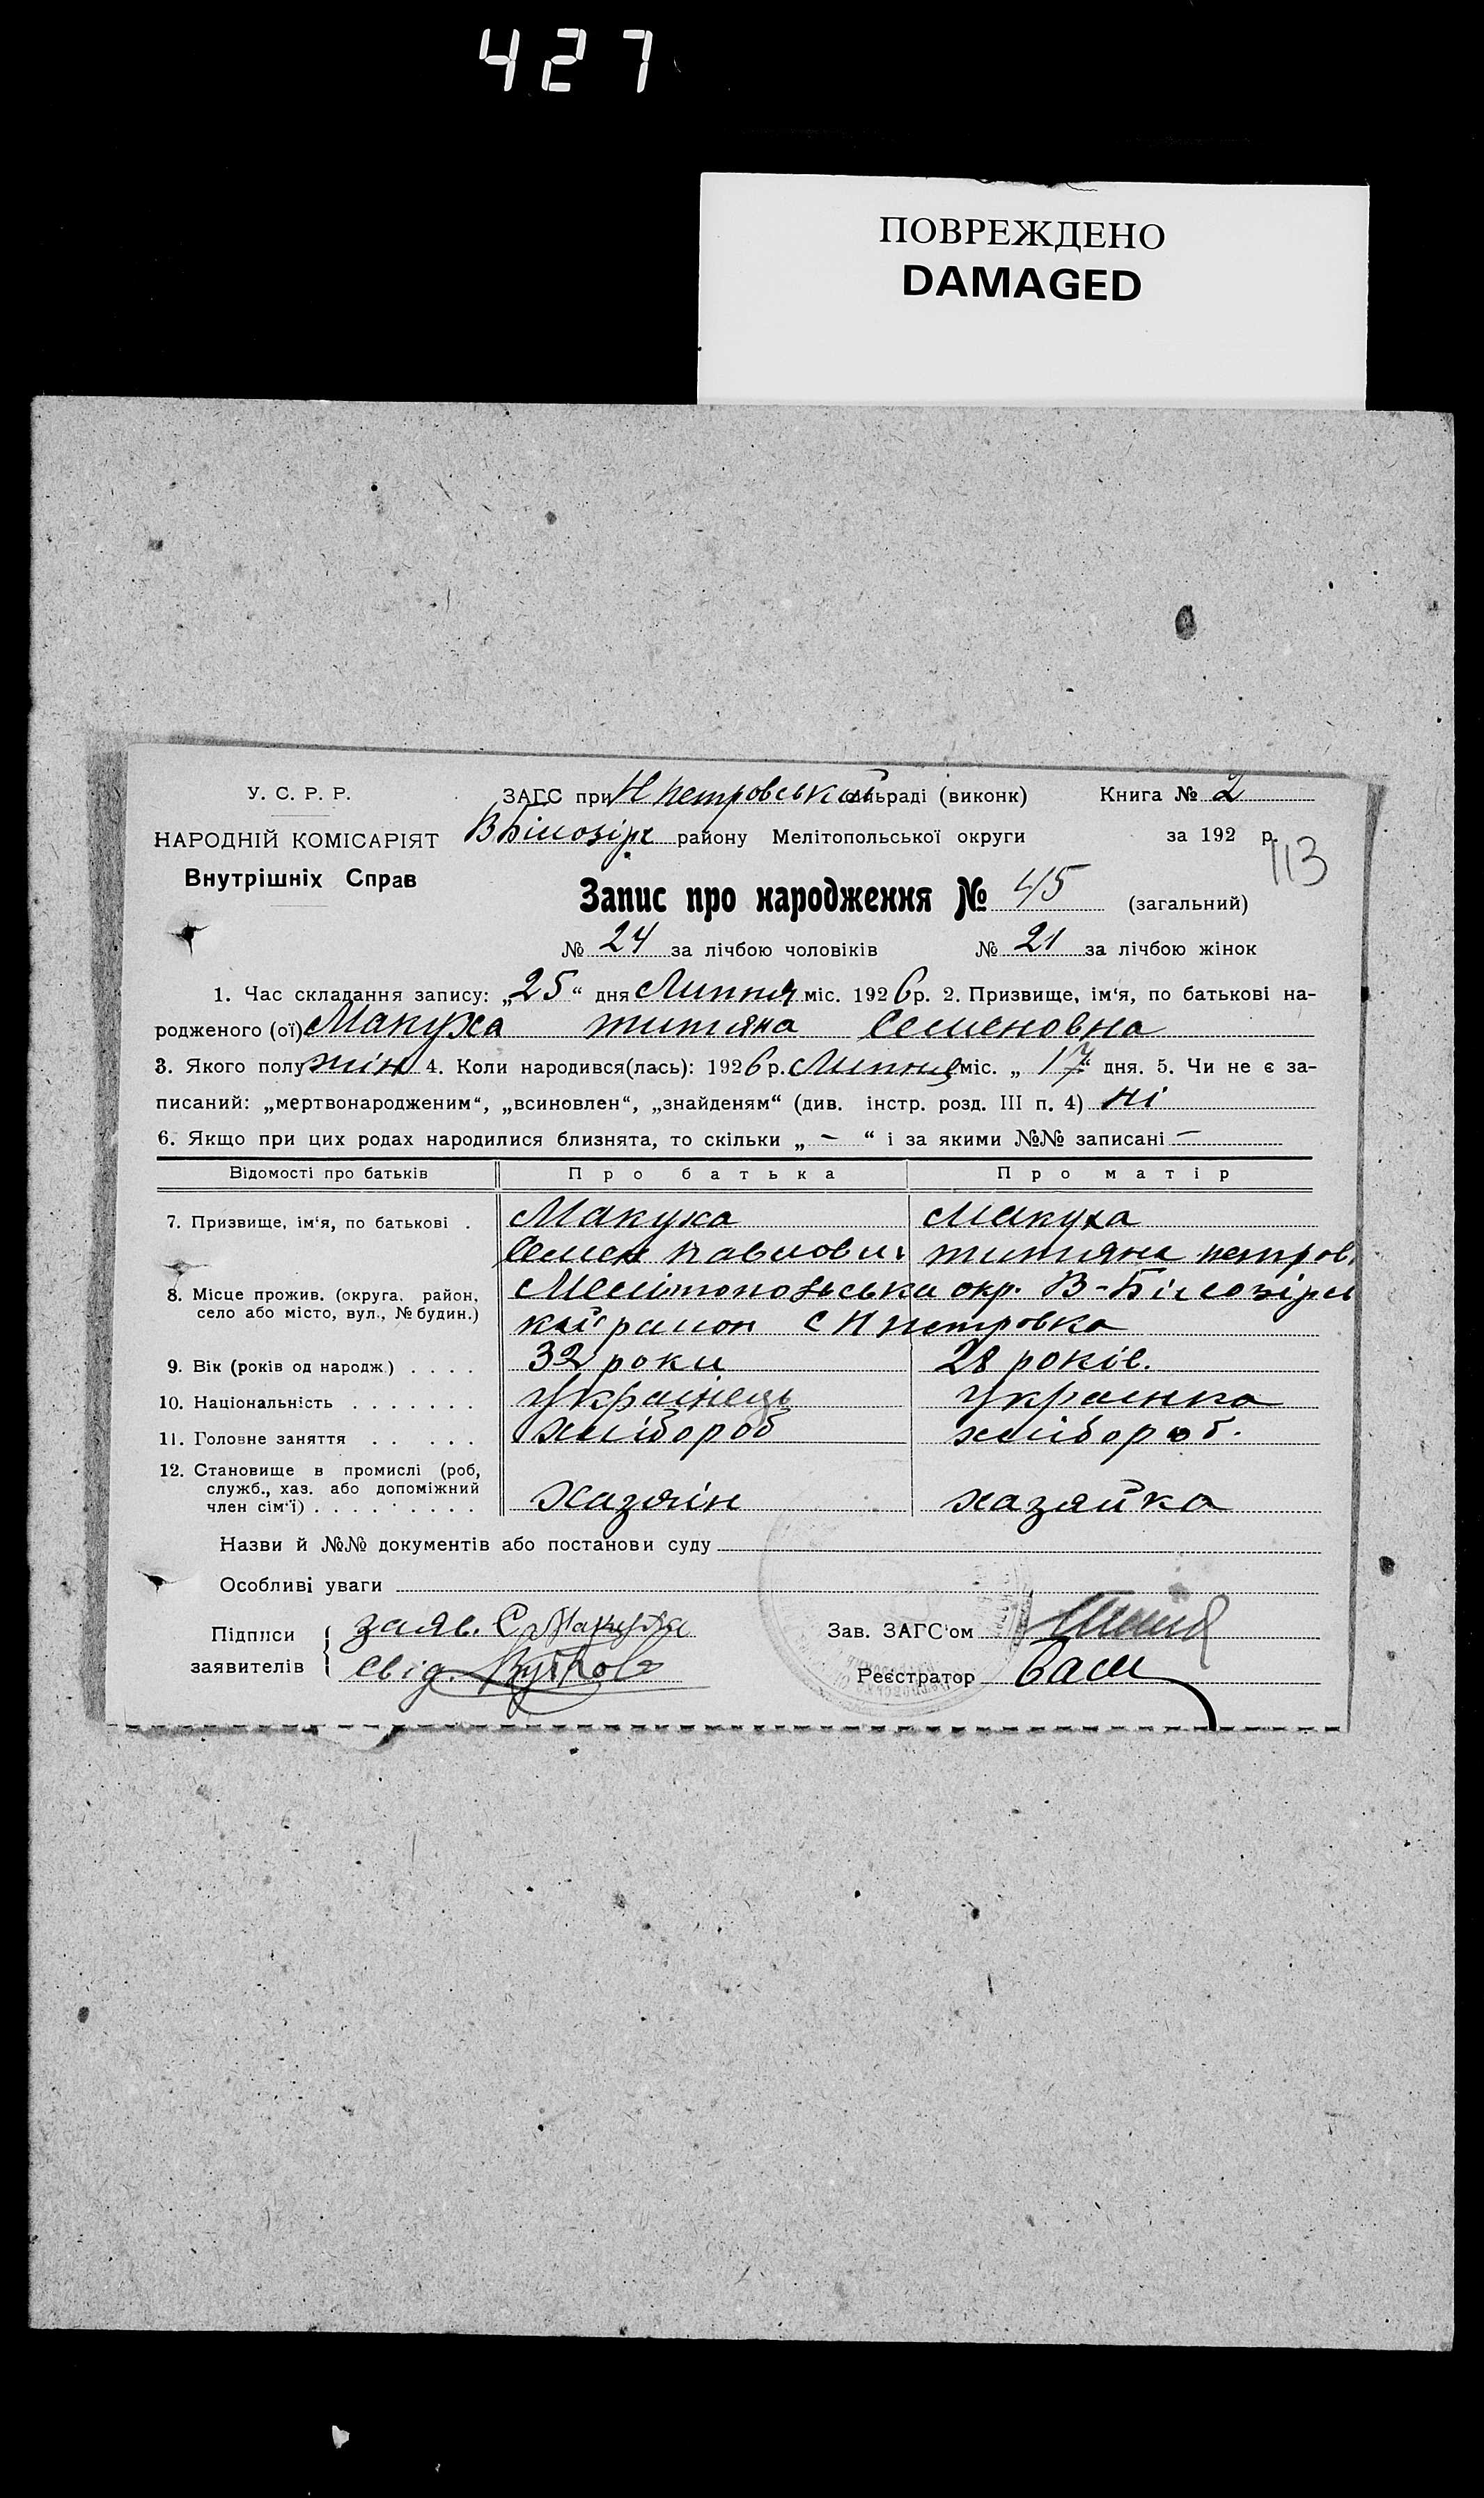 427
ПОВРЕЖДЕНО
DAMAGED
У. С. Р. Р.
НАРОДНІЙ КОМІСАРІЯТ
Внутрішніх Справ
ЗАГС при Н петровській сільраді (виконк)
В Білозірк району Мелітопольської округи
Книга № 2
за 192 р.
113
Запис про народження № 45 (загальний)
№ 24 за лічбою чоловіків № 21 за лічбою жінок
1. Час складання запису: „25“ дня Липня міс. 1926 р. 2. Призвище, ім‘я, по батькові на-
родженого (ої) Макуха титяна Семеновна
3. Якого полу жін 4. Коли народився(лась): 1926 р. Липня міс. „17“ дня. 5. Чи не є за-
писаний: „мертвонародженим“, „всиновлен“, „знайденям“ (див. інстр. розд. III п. 4) ні
6. Якщо при цих родах народилися близнята, то скільки „ – “ і за якими №№ записані –
Відомості про батьків Про батька Про матір
7. Призвище, ім‘я, по батькові . Макуха Макуха
Семен Павлович титяна петров.
8. Місце прожив. (округа, район, село або місто, вул., № будин.) Мелітопольська окр. В-Білозірсь
кий район с Н петровка
9. Вік (років од народж.) . . . . 32 роки 28 років.
10. Національність . . . . . . . Українець Українка
11. Головне заняття . . . . . хлібороб хлібороб.
12. Становище в промислі (роб,
служб., хаз. або допоміжний
член сім‘ї) . . . . . . . . . хазяін хазяйка
Назви й №№ документів або постанови суду
Особливі уваги
Підписи
заявителів
заяв. С Макуха
свід.
Зав. ЗАГС‘ом
Реєстратор